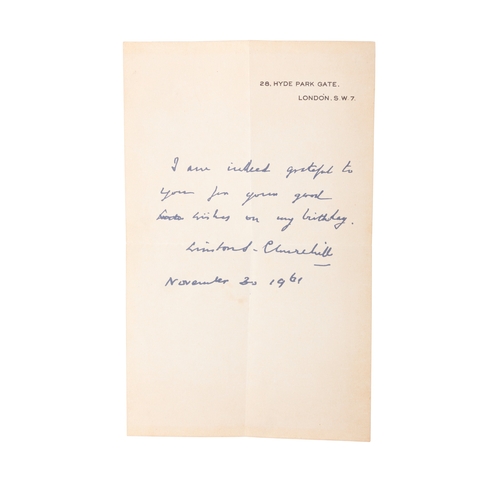 28, HYDE PARK GATE,
LONDON, S.W.7.
I am indeed grateful to
you for your good
wishes on my birthday.
Winston S. Churchill
November 30 1961